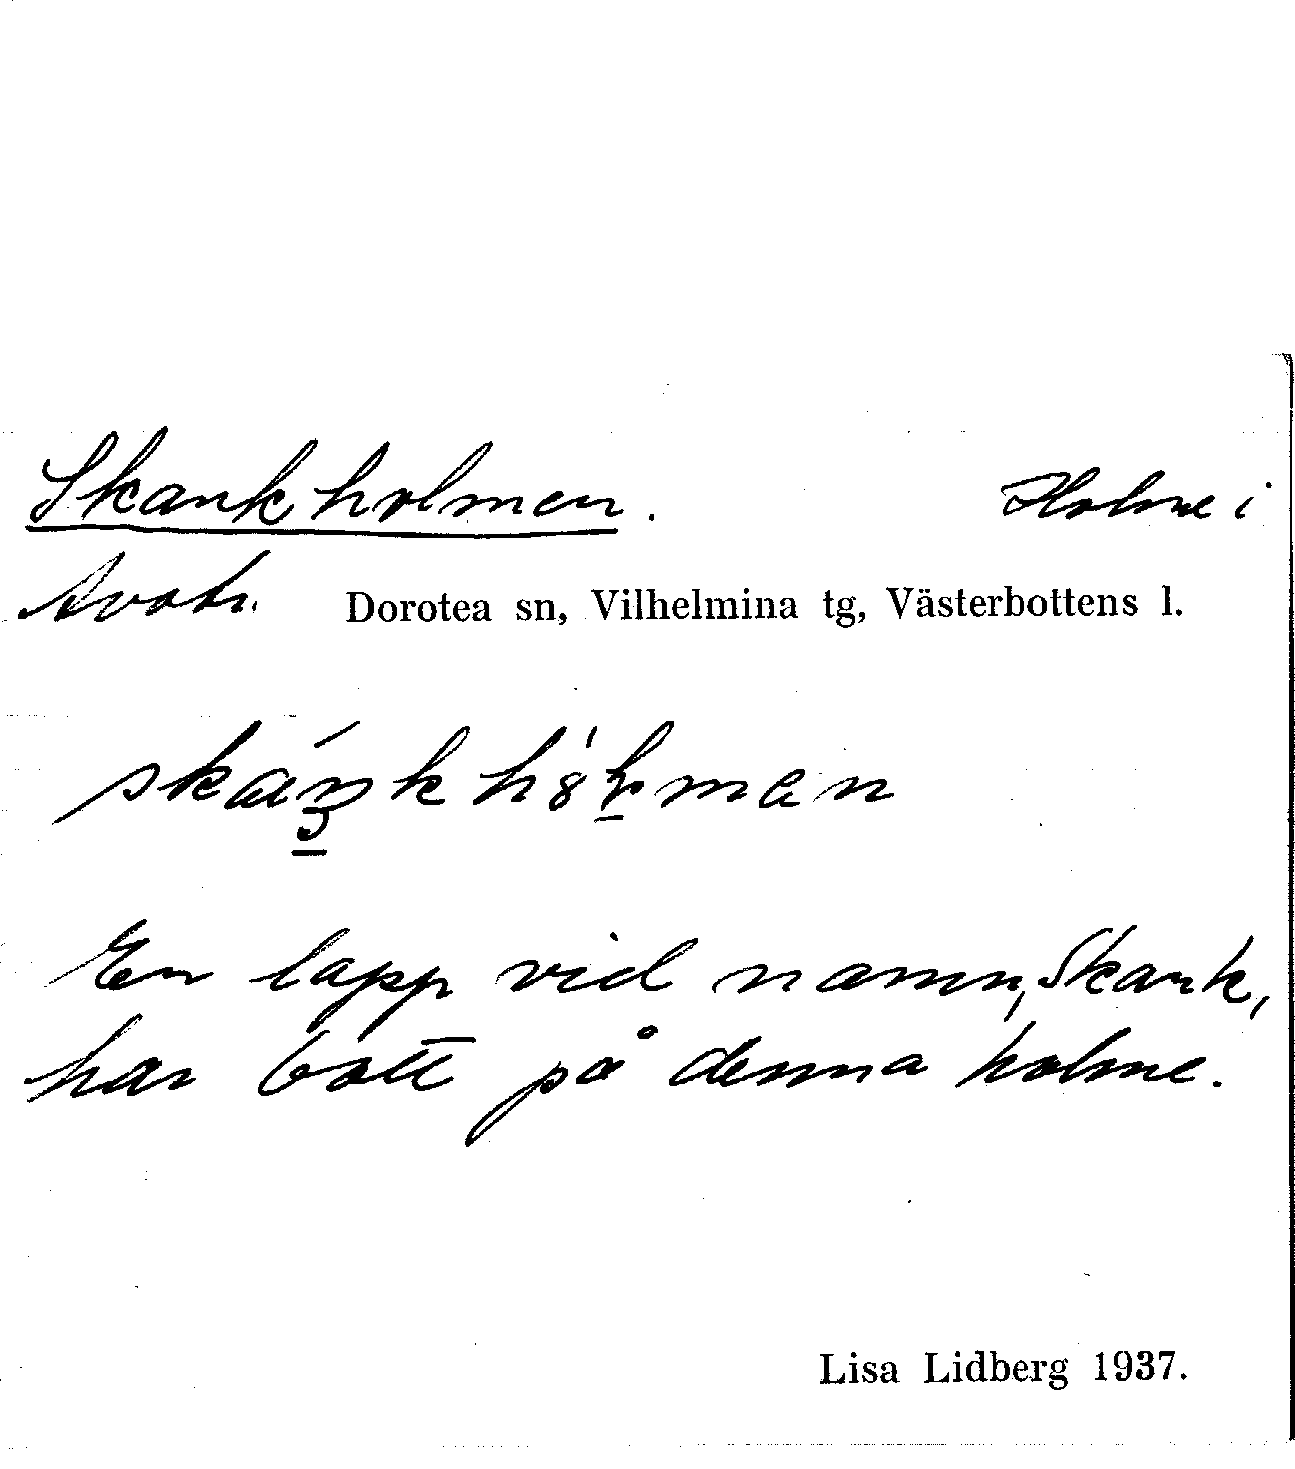 Skankholmen. Holme i
Avatr. Dorotea sn, Vilhelmina tg, Västerbottens l.
En lapp vid namn, Skank,
har bott på denna holme.
Lisa Lidberg 1937.